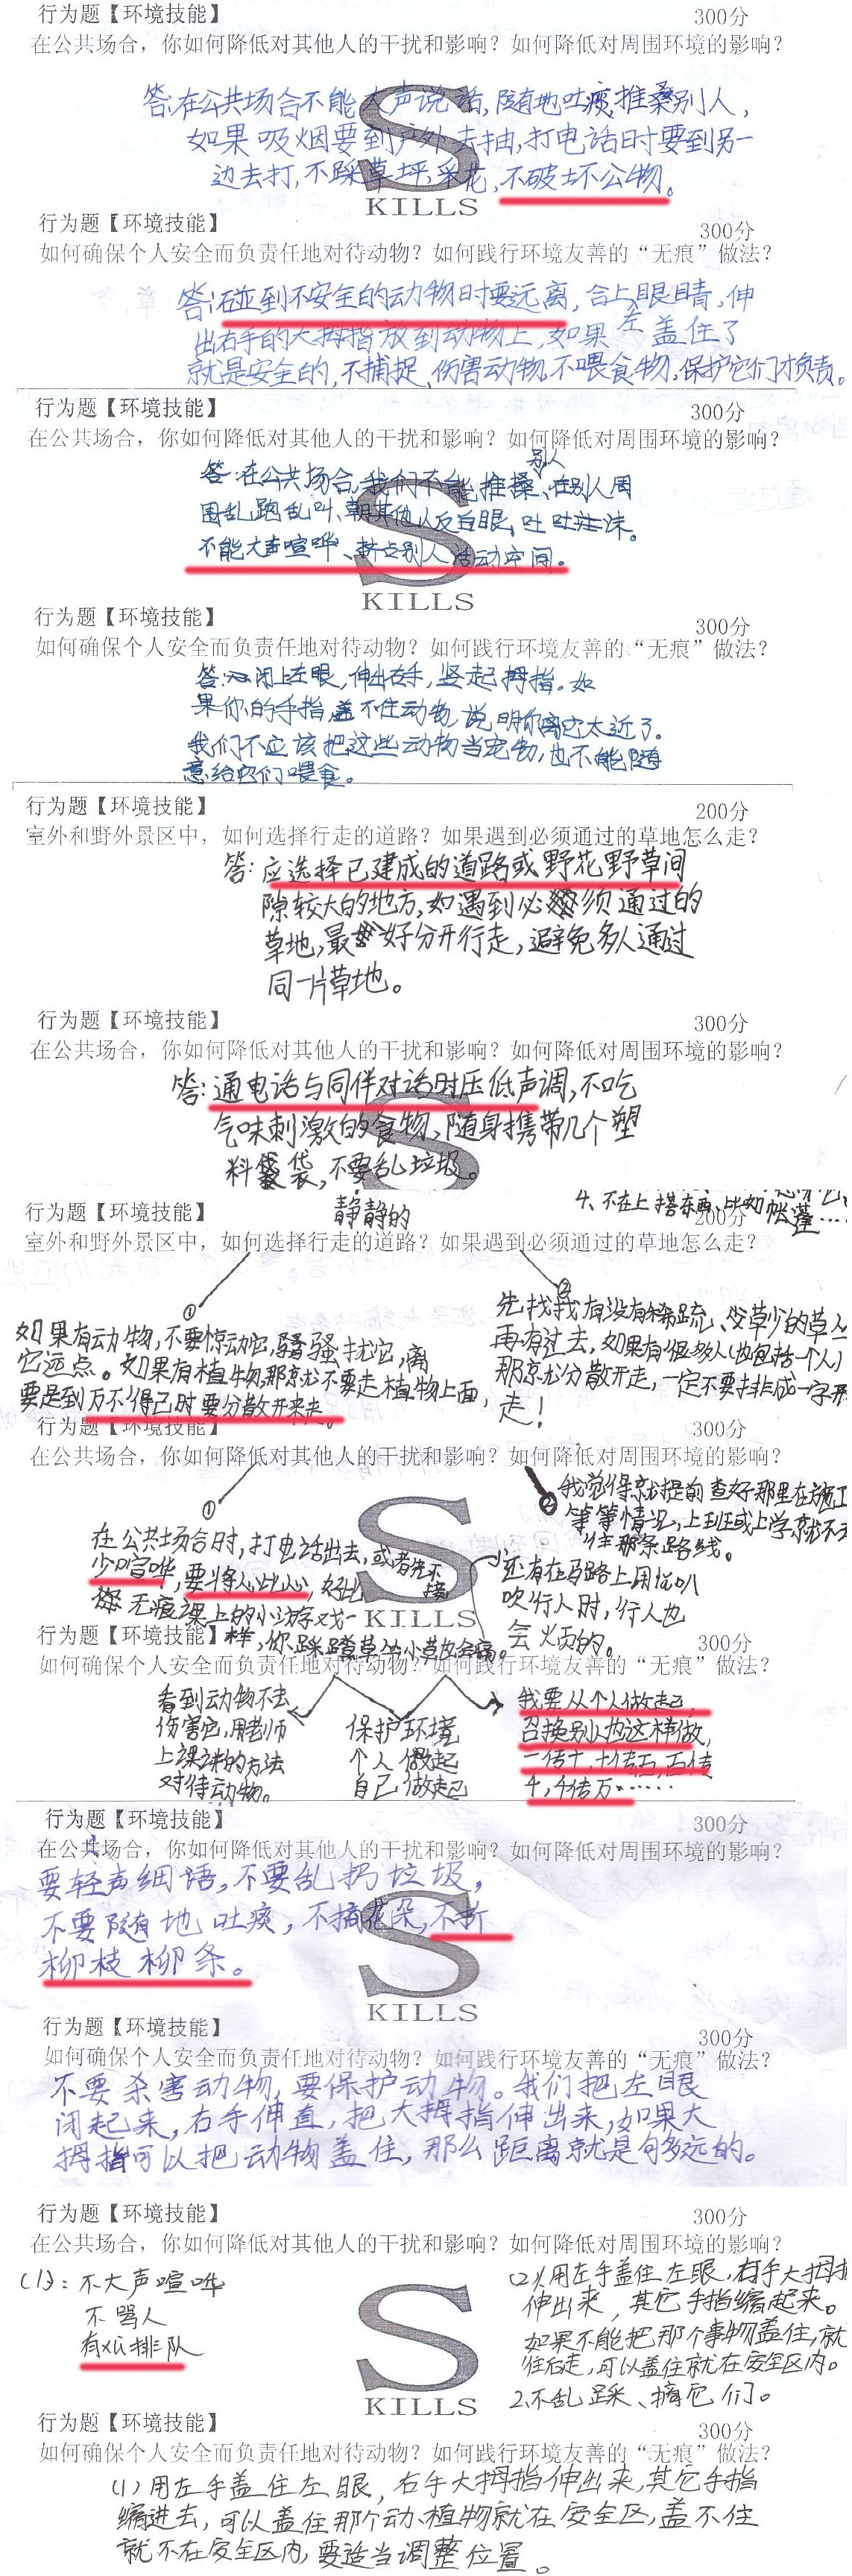 行为题【环境技能】 300分
在公共场合，你如何降低对其他人的干扰和影响？如何降低对周围环境的影响？
答:在公共场合不能大声说话,随地吐痰,推桑别人,
如果吸烟要到户外去抽,打电话时要到另一
边去打,不踩草坪,采花,不破坏公物。
SKILLS
行为题【环境技能】 300分
如何确保个人安全而负责任地对待动物？如何践行环境友善的“无痕”做法？
答:碰到不安全的动物时要远离,合上眼睛,伸
出右手的大拇指放到动物上,如果 盖住了
就是安全的,不捕捉、伤害动物,不喂食物,保护它们才负责。
行为题【环境技能】 300分
在公共场合，你如何降低对其他人的干扰和影响？如何降低对周围环境的影响？
答:在公共场合,我们不能推搡别人,在别人周
围乱跑乱叫、朝其他人反白眼,吐吐沫。
不能大声喧哗、挤占别人活动空间。
SKILLS
行为题【环境技能】 300分
如何确保个人安全而负责任地对待动物？如何践行环境友善的“无痕”做法？
答:闭上左眼,伸出右手,竖起拇指。如
果你的手指盖不住动物,说明你离它太近了。
我们不应该把这些动物当宠物,也不能随
意给它们喂食。
行为题【环境技能】 200分
室外和野外景区中，如何选择行走的道路？如果遇到必须通过的草地怎么走？
答:应选择已建成的道路或野花野草间
隙较大的地方,如遇到必须通过的
草地,最好分开行走,避免多人通过
同一片草地。
行为题【环境技能】 300分
在公共场合，你如何降低对其他人的干扰和影响？如何降低对周围环境的影响？
答:通电话与同伴对话时压低声调,不吃
气味刺激的食物,随身携带几个塑
料袋,不要乱垃圾。
静静的
4、不在上搭东西、比如帐蓬……
行为题【环境技能】 200分
室外和野外景区中，如何选择行走的道路？如果遇到必须通过的草地怎么走？
①
如果有动物,不要惊动它,骚扰它,离
它远点。如果有植物那就不要走植物上面,
要是到万不得已时要分散开来走。
②
先找找有没有稀疏、草少的草
再有过去,如果有很多人(也包括一个人)
那就分散开走,一定不要排成一字形
走!
行为题【环境技能】 300分
在公共场合，你如何降低对其他人的干扰和影响？如何降低对周围环境的影响？
①
在公共场合时,打电话出去,或者先不接
少喧哗,要将心比心,好比
无痕课上的小游戏一
样,你踩踏草丛小草也会痛。
②
我觉得就提前查好那里在施工
等等情况,上班或上学就不去
住那条路线。
还有在马路上用喇叭
吹行人时,行人也
会烦的。
SKILLS
行为题【环境技能】 300分
如何确保个人安全而负责任地对待动物？如何践行环境友善的“无痕”做法？
看到动物不去
伤害它,用老师
上课讲的方法
对待动物。
保护环境
个人做起
自己做起
我要从个人做起,
召换别人也这样做,
一传十,十传百,百传
千,千传万……
行为题【环境技能】 300分
在公共场合，你如何降低对其他人的干扰和影响？如何降低对周围环境的影响？
要轻声细语,不要乱扔垃圾,
不要随地吐痰,不摘花朵,不折
柳枝柳条。
SKILLS
行为题【环境技能】 300分
如何确保个人安全而负责任地对待动物？如何践行环境友善的“无痕”做法？
不要杀害动物,要保护动物。我们把左眼
闭起来,右手伸直,把大拇指伸出来,如果大
拇指可以把动物盖住,那么距离就是够远的。
行为题【环境技能】 300分
在公共场合，你如何降低对其他人的干扰和影响？如何降低对周围环境的影响？
(1):不大声喧哗
不骂人
有xù排队
(2)1、用左手盖住左眼,右手大拇指
伸出来,其它手指缩起来。
如果不能把那个事物盖住,就
往后走,可以盖住就在安全区内。
2、不乱踩、摘它们。
SKILLS
行为题【环境技能】 300分
如何确保个人安全而负责任地对待动物？如何践行环境友善的“无痕”做法？
(1)用左手盖住左眼,右手大拇指伸出来,其它手指
缩进去,可以盖住那个动、植物就在安全区,盖不住
就不在安全区内,要适当调整位置。